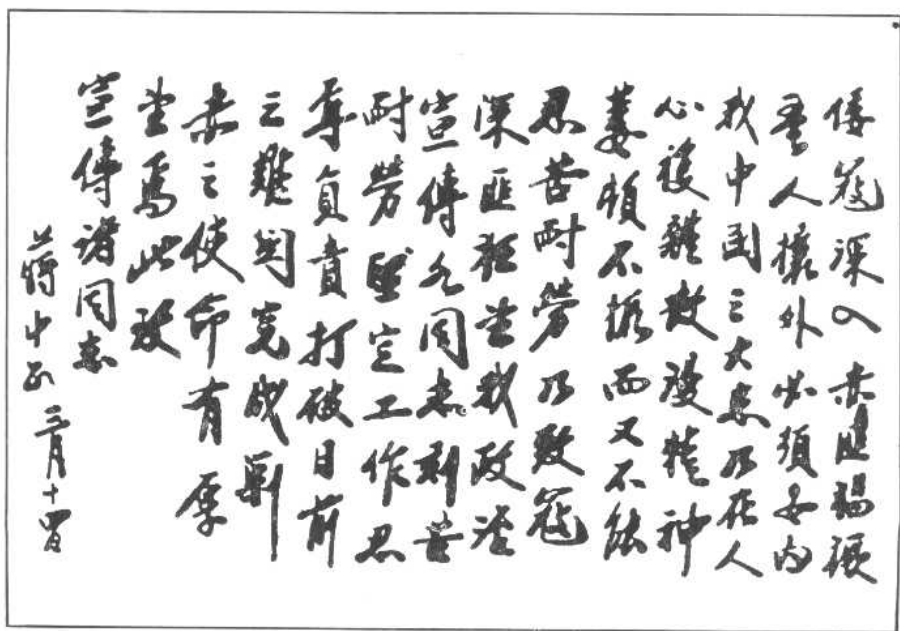 倭寇深入赤匪猖獗
吾人攘外必須安内
我中國之大患乃在人
心複雜散漫精神
萎頓不振而又不能
忍苦耐勞乃致寇
深匪猖望我政治
宣傳各同志刻苦
耐勞堅定工作忍
辱負責打破目前
之難關完成剿
赤之使命有厚
望焉此致
宣傳諸同志
蔣中正 三月十四日